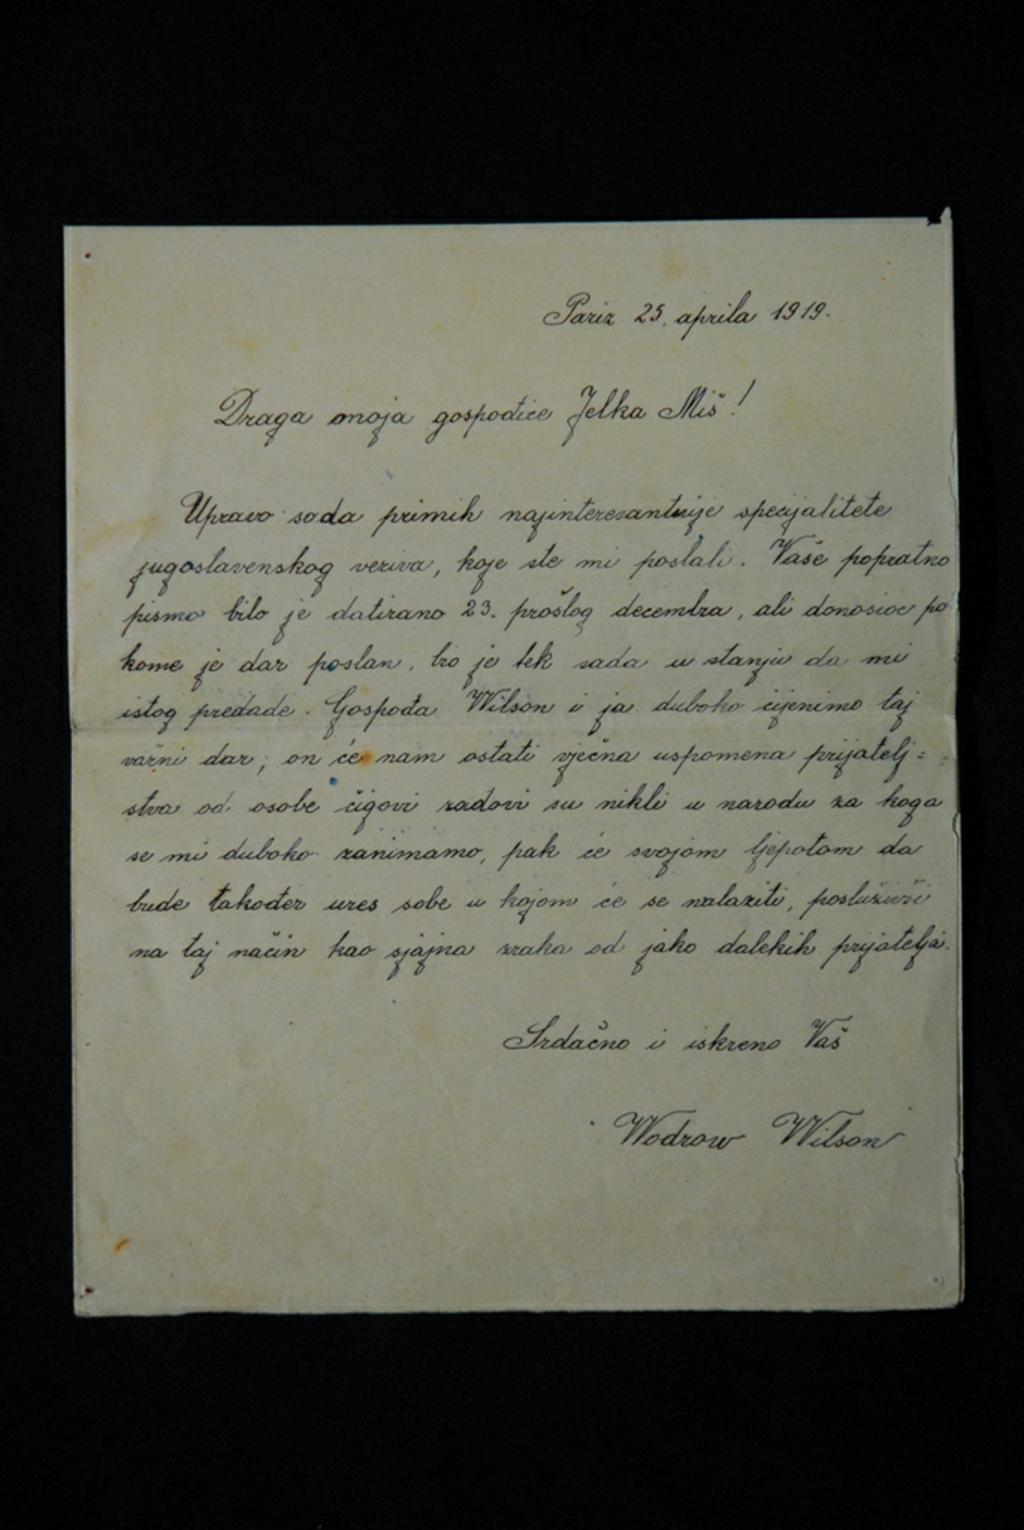 Pariz 25. aprila 1919.
Draga moja gospodice Jelka Miš!
Upravo sada primih najinteresantnije specijalitete
jugoslavenskog veziva, koje ste mi poslali. Vaše popratno
pismo bilo je datirano 23. prošlog decembra, ali donosioc po
kome je dar poslan, bio je tek sada u stanju da mi
istog predade. Gospođa Wilson i ja duboko cijenimo taj
važni dar; on će nam ostati vječna uspomena prijatelj=
stva od osobe čigovi radovi su nikli u narodu za koga
se mi duboko zanimamo, pak će svojom ljepotom da
bude također ures sobe u kojom će se nalaziti, posluživši
na taj način kao sjajna zraka od jako dalekih prijatelja.
Srdačno i iskreno Vaš
Wodrow Wilson